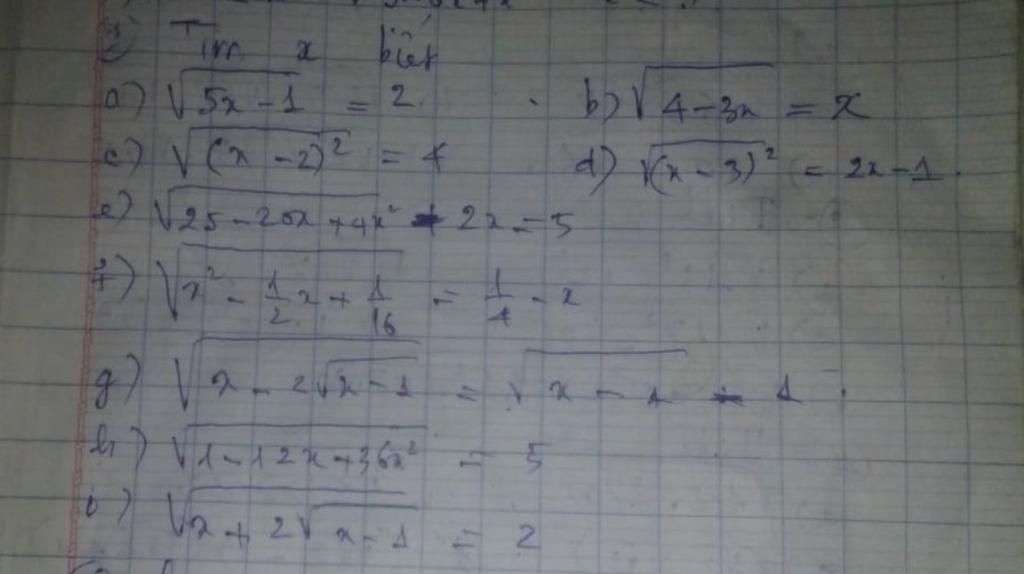 2) Tìm x biết
a) √(5x-1) = 2 b) √(4-3x) = x
c) √((x-2)²) = 4 d) √((x-3)²) = 2x-1
e) √(25-20x+4x²) + 2x = 5
f) √(x² - 1/2 x + 1/16) = 1/4 - x
g) √(x - 2√(x-1)) = √(x-1) - 1
h) √(1-12x+36x²) = 5
√(x+2√(x-1)) = 2